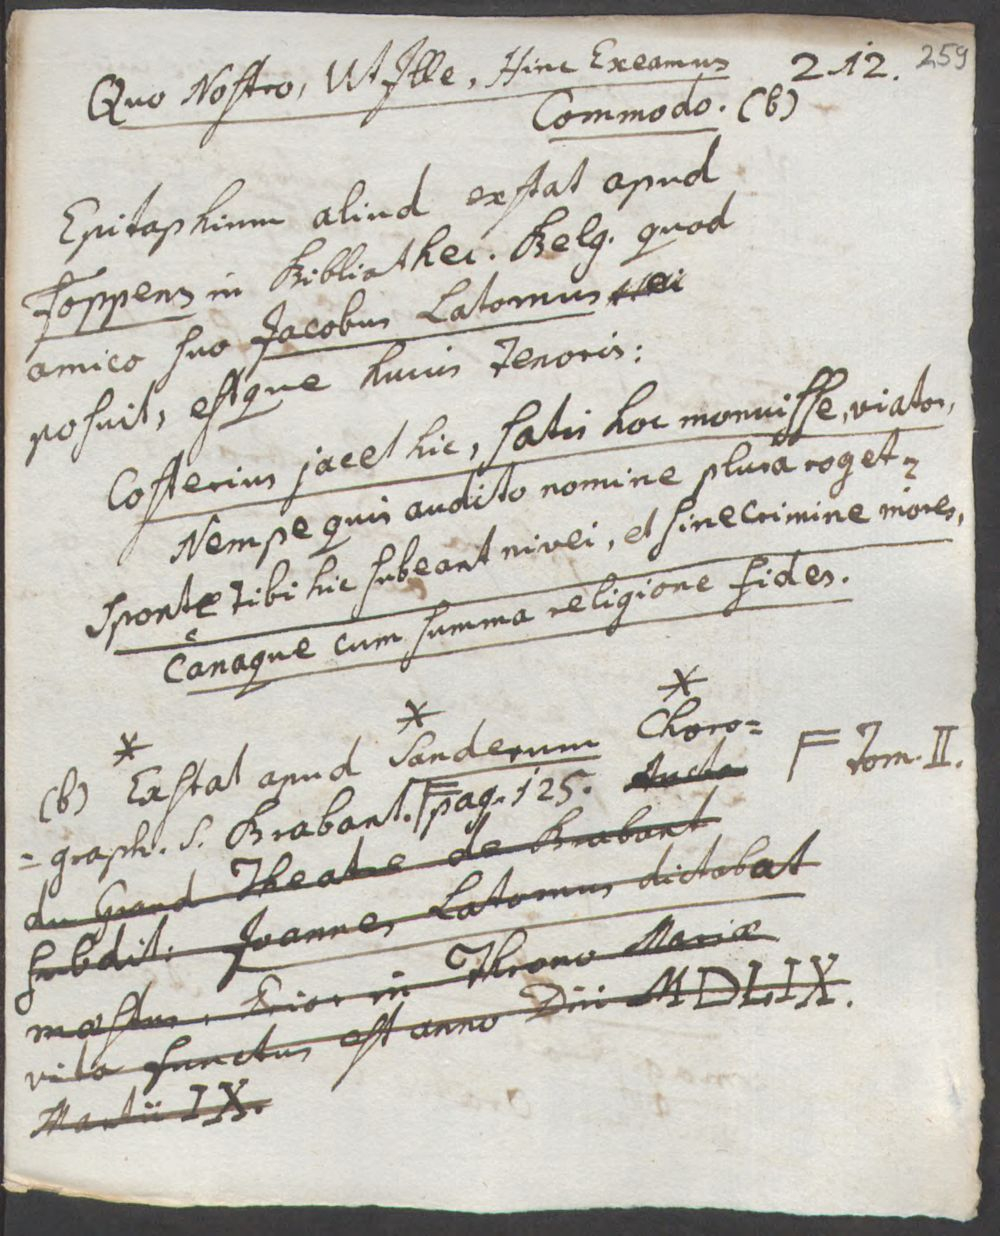 259
212.
Quo Nostro, Ut Ille, Hinc Exeamus
Commodo. (b)
Epitaphium aliud exstat apud
Foppens in Bibliothec. Belg. quod
amico suo Jacobus Latomus
posuit, estque huius tenoris:
Costerius jacet hic, satis hoc monuisse, viator,
Nempe quis audito nomine plura roget?
Sponte tibi hic subeant nivei, et sine crimine mores,
Canaque cum summa religione fides.
(b) * Exstat apud * Sanderum * Choro=
=graph. S. Brabant. F pag. 125. Aucta F Tom. II.
du Grand Theatre de Brabant
subdit: Joannes Latomus dictabat
mœstus, Prior in Throno Mariæ
vita functus est anno Dni MDLIX.
Martii IX.